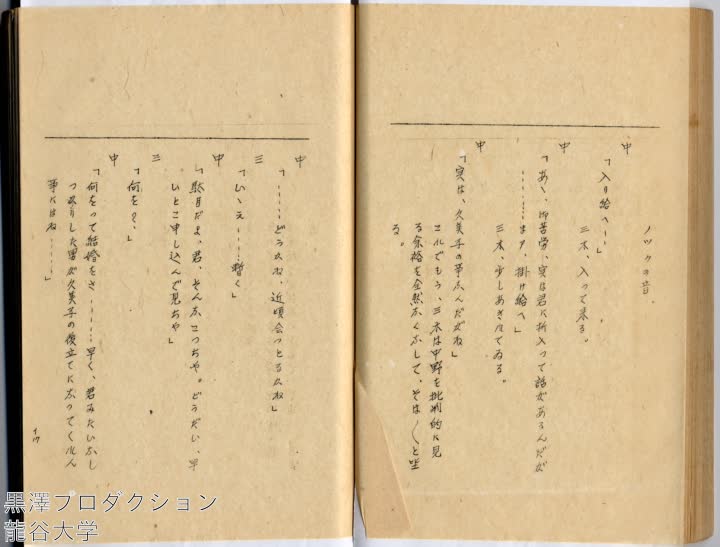 ノックの音。
中
「入り給へ——」
三木、入って来る。
中
「あゝ、御苦労、実は君に折入って話があるんだが
………まア、掛け給へ」
三木、少しあきれてゐる。
中
「実は、久美子の事なんだがね」
これでもう、三木は中野を批判的に見
る余裕を全然なくなして、そは〳〵と坐
る。
中
「………どうかね、近頃会っとるかね」
三
「いゝえ………暫く」
中
「駄目だよ、君、そんなこっちや。どうだい、早
いとこ申し込んで見ちや」
三
「何を？、」
中
「何をって結婚をさ………早く、君みたいなし
つかりした男が久美子の役立てになってくれん
事にはね………」
黒澤プロダクション
龍谷大学